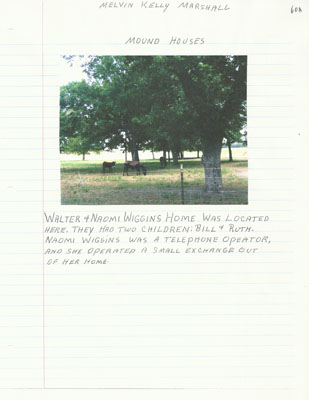 MELVIN KELLY MARSHALL
606
MOUND HOUSES
WALTER & NAOMI WIGGINS HOME WAS LOCATED
HERE. THEY HAD TWO CHILDREN: BILL & RUTH.
NAOMI WIGGINS WAS A TELEPHONE OPEATOR,
AND SHE OPERATED A SMALL EXCHANGE OUT
OF HER HOME.